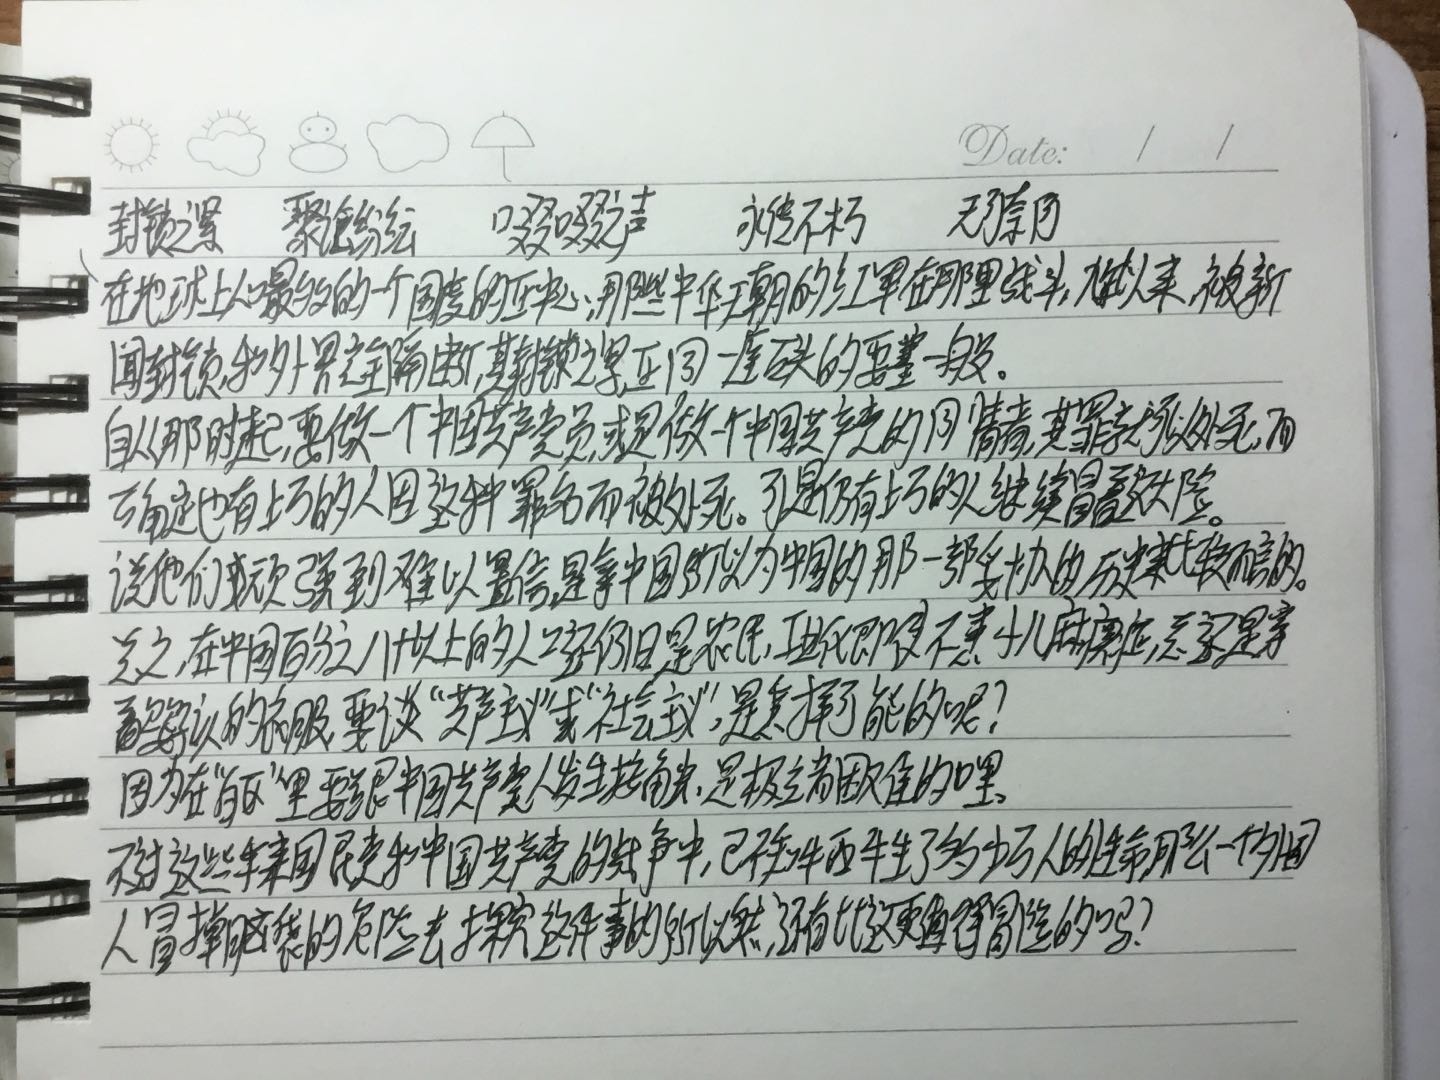 Date: / /
封锁之紧 聚讼纷纭 啜啜之声 永传不朽 无可奈何
在地球上人口最多的一个国度的正中心,那些中华天朝的红军在那里战斗,九年以来,被新
闻封锁,和外界完全隔断,其封锁之紧,正同一座石头的要塞一般。
自从那时起,要做一个中国共产党员,或是做一个中国共产党的同情者,其罪就可以处死,而
且确定也有上万的人因这种罪名而被处死。可是仍有上万的人继续冒着这大险。
说他们或顽强到难以置信,是拿中国所以为中国的那一部妥协的历史来比较而言的。
总之,在中国百分之八十以上的人口还仍旧是农民,工业即使不患小儿麻痹症,总还是穿
着的衣服,要谈“共产主义”或“社会主义”,是怎样可能的呢?
因为在“白区”里要跟中国共产党人发生接触,是极其困难的哩。
不过这些年来国民党和中国共产党的战争中,已经牺牲了多少万人的生命,那么一个外国
人冒掉脑袋的危险去探究这件事的所以然,还有比这更值得冒险的吗?